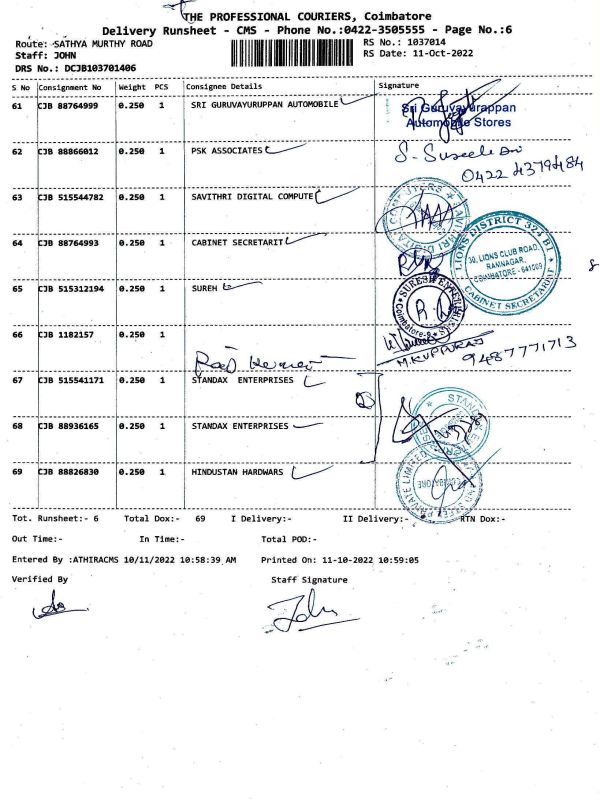 THE PROFESSIONAL COURIERS, Coimbatore
Delivery Runsheet - CMS - Phone No.:0422-3505555 - Page No.:6
Route: SATHYA MURTHY ROAD
RS No.: 1037014
Staff: JOHN
RS Date: 11-Oct-2022
DRS No.: DCJB103701406
S No Consignment No Weight PCS Consignee Details Signature
61 CJB 88764999 0.250 1 SRI GURUVAYURUPPAN AUTOMOBILE
Sri Guruvayurappan
Automobile Stores
62 CJB 88866012 0.250 1 PSK ASSOCIATES
0422 4379484
63 CJB 515544782 0.250 1 SAVITHRI DIGITAL COMPUTE
64 CJB 88764993 0.250 1 CABINET SECRETARIT
LIONS DISTRICT 324 B1
30, LIONS CLUB ROAD,
RAMNAGAR,
COIMBATORE - 641009
CABINET SECRETARIAT
65 CJB 515312194 0.250 1 SUREH
66 CJB 1182157 0.250 1
M.KUPPURAJ
9487771713
67 CJB 515541171 0.250 1 STANDAX ENTERPRISES
68 CJB 88936165 0.250 1 STANDAX ENTERPRISES
69 CJB 88826830 0.250 1 HINDUSTAN HARDWARS
Tot. Runsheet:- 6 Total Dox:- 69 I Delivery:- II Delivery:- RTN Dox:-
Out Time:- In Time:- Total POD:-
Entered By :ATHIRACMS 10/11/2022 10:58:39 AM Printed On: 11-10-2022 10:59:05
Verified By Staff Signature
John